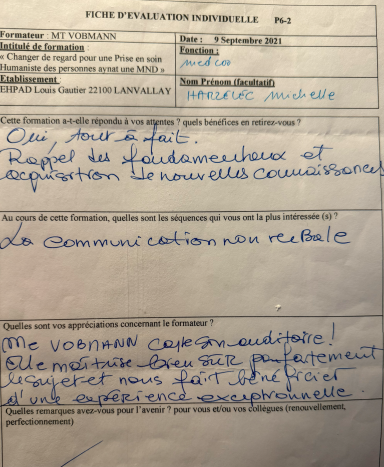 FICHE D'EVALUATION INDIVIDUELLE P6-2
Formateur : MT VOBMANN
Date : 9 Septembre 2021
Intitulé de formation :
« Changer de regard pour une Prise en soin
Humaniste des personnes aynat une MND »
Fonction :
medco
Etablissement :
EHPAD Louis Gautier 22100 LANVALLAY
Nom Prénom (facultatif)
Michelle
Cette formation a-t-elle répondu à vos attentes ? quels bénéfices en retirez-vous ?
Oui, tout à fait.
Rappel des fondamentaux et
acquisition de nouvelles connaissances
Au cours de cette formation, quelles sont les séquences qui vous ont la plus intéressée (s) ?
La communication non verbale
Quelles sont vos appréciations concernant le formateur ?
Me VOBMANN capte son auditoire !
Elle maîtrise bien sûr parfaitement
le sujet et nous fait bénéficier
d'une expérience exceptionnelle.
Quelles remarques avez-vous pour l'avenir ? pour vous et/ou vos collègues (renouvellement,
perfectionnement)